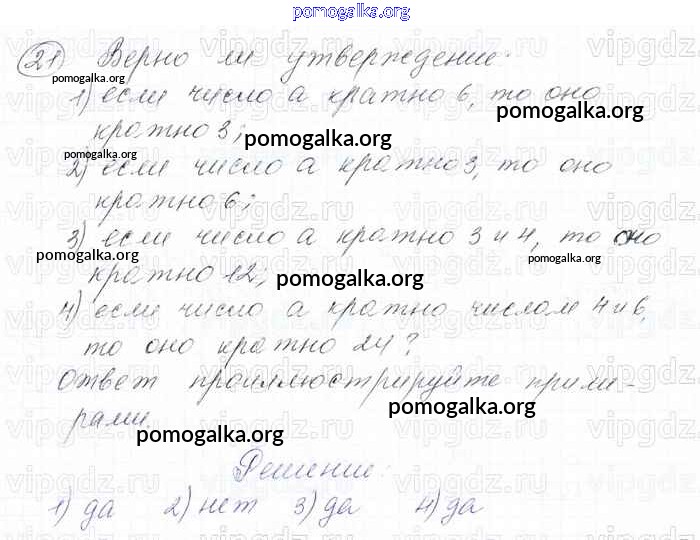 pomogalka.org
21) Верно ли утверждение:
pomogalka.org
1) если число а кратно 6, то оно
pomogalka.org
кратно 3;
pomogalka.org
pomogalka.org
2) если число а кратно 3, то оно
кратно 6;
pomogalka.org
3) если число а кратно 3 и 4, то оно
pomogalka.org
pomogalka.org
кратно 12;
pomogalka.org
4) если число а кратно числам 4 и 6,
то оно кратно 24?
Ответ проиллюстрируйте приме-
pomogalka.org
рами.
pomogalka.org
Решение:
1) да 2) нет 3) да 4) да